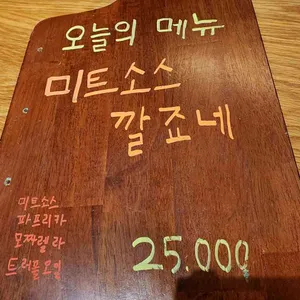 오늘의 메뉴
미트소스
깔죠네
미트소스
파프리카
모짜렐라
트러플오일
25.000